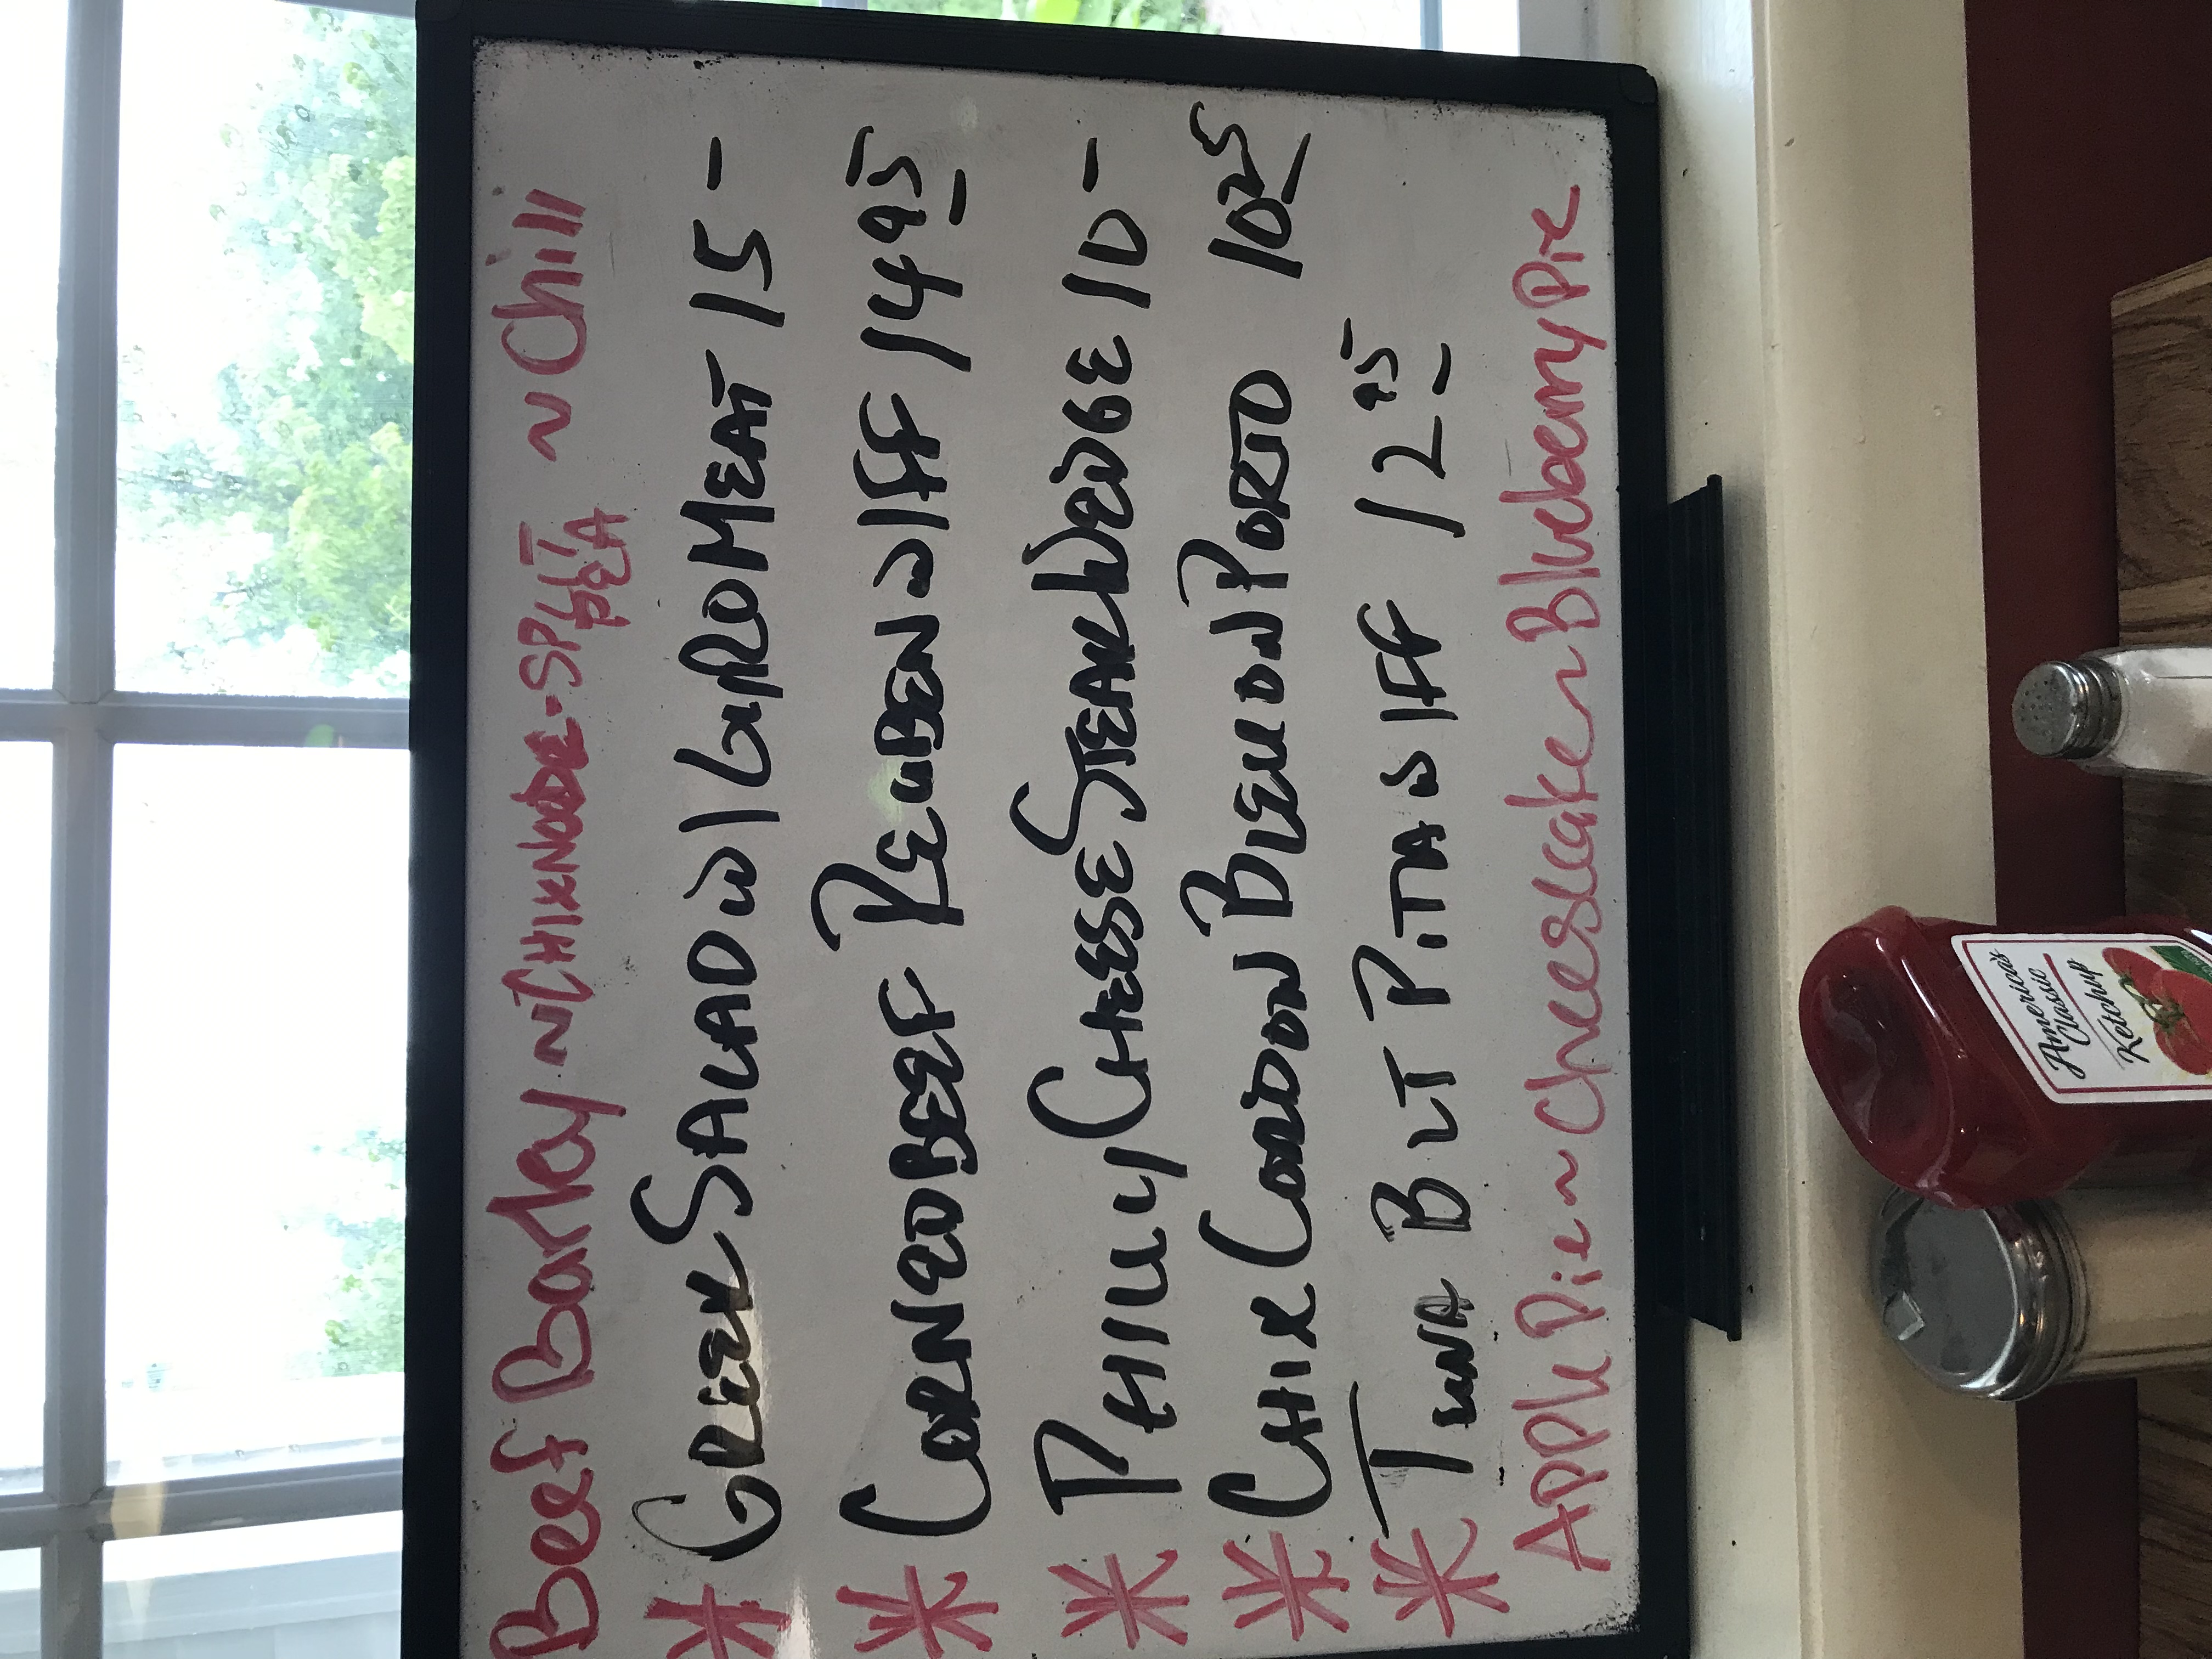 Beef Barley ~ CHIKNOODLE - SPLIT PEA ~ Chili
* GREEK SALAD W/ GYRO MEAT 15-
* CORNED BEEF REUBEN W/FF 14 95
* PHILLY CHEESE STEAK WEDGE 10-
* CHIX CORDON BLEU ON PORTO 10 25
* TUNA BLT PITA W/FF 12 95
Apple Pie ~ Cheesecake ~ Blueberry Pie
America's
Classic
Ketchup